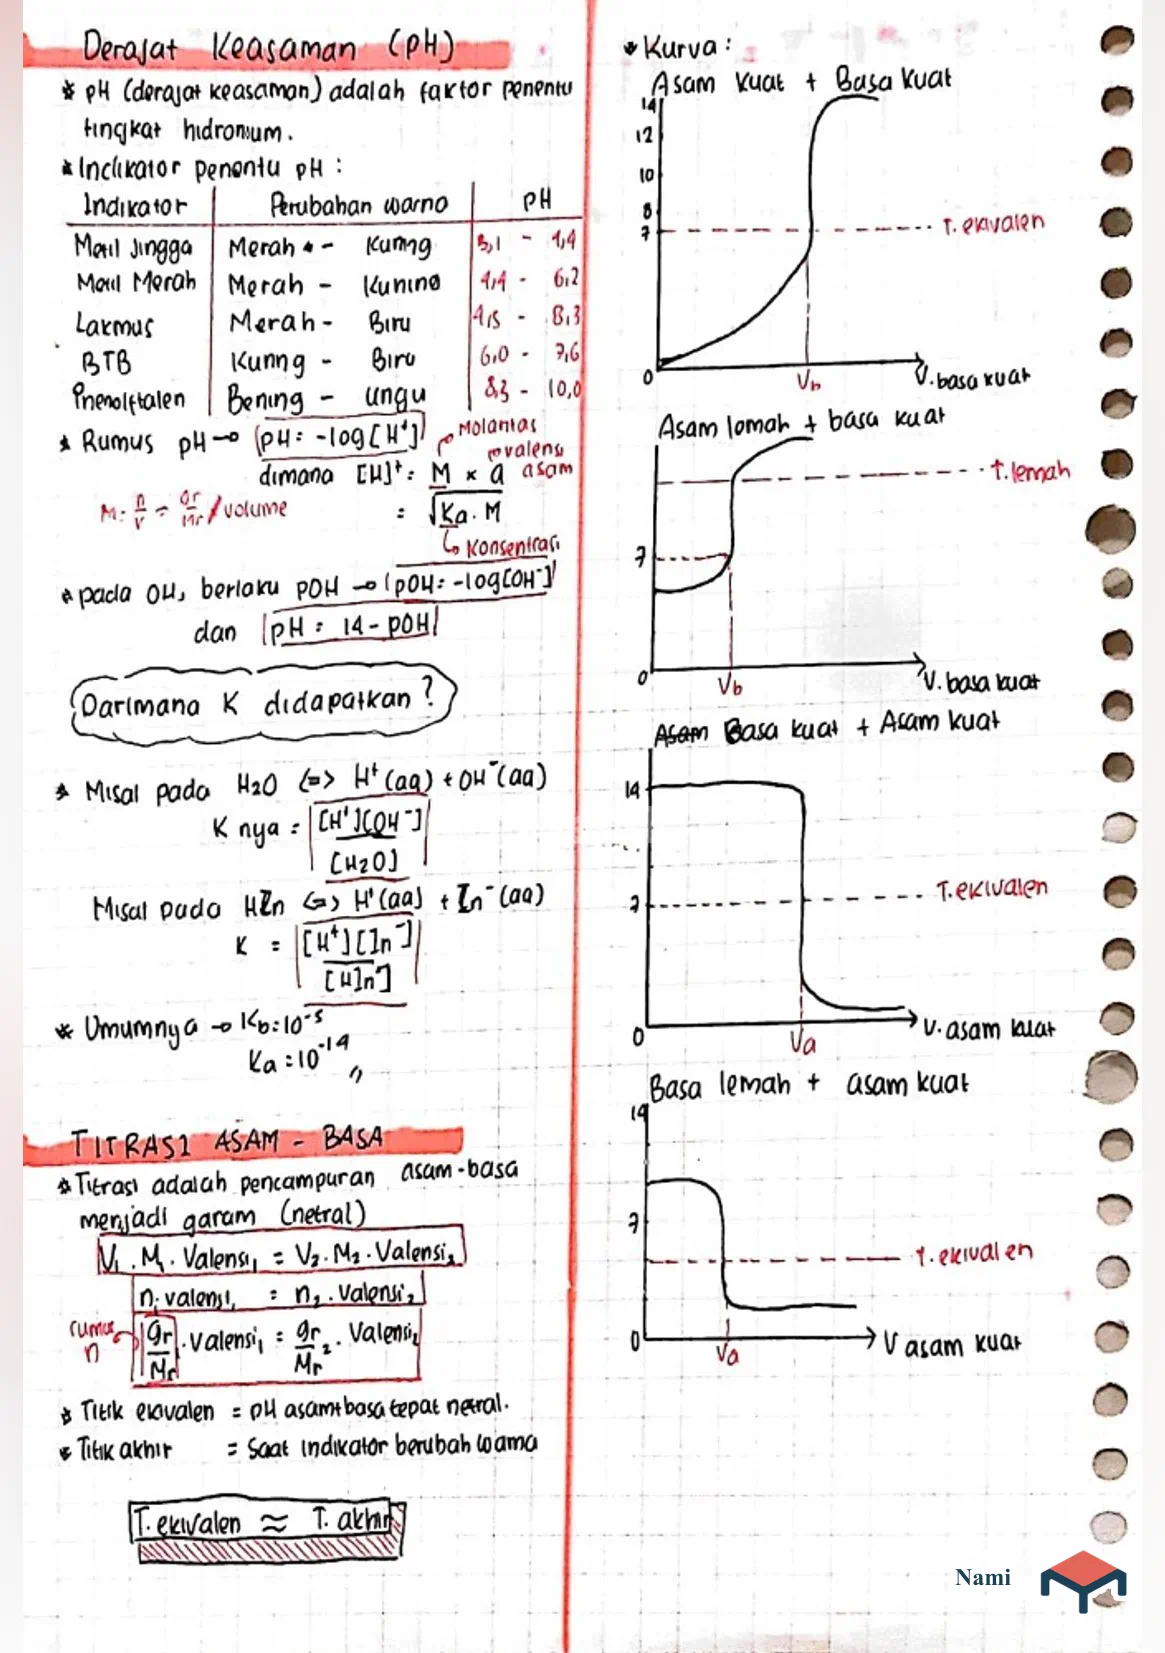 Derajat Keasaman (pH)
* pH (derajat keasaman) adalah faktor penentu
tingkat hidronium.
* Indikator penentu pH :
Indikator Perubahan warna pH
Metil Jingga Merah - Kuning 3,1 - 4,4
Metil Merah Merah - Kuning 4,4 - 6,2
Lakmus Merah - Biru 4,5 - 8,3
BTB Kuning - Biru 6,0 - 7,6
Phenolftalen Bening - Ungu 8,3 - 10,0
* Rumus pH → pH = -log[H⁺]
Molaritas
valensi asam
dimana [H]⁺ = M × a
M = n/V = gr/Mr / volume
= √Ka . M
↳ Konsentrasi
* pada OH, berlaku pOH → pOH = -log[OH⁻]
dan pH = 14 - pOH
Darimana K didapatkan ?
* Misal pada H2O <=> H⁺(aq) + OH⁻(aq)
K nya = [H⁺][OH⁻]
[H2O]
Misal pada HIn <=> H⁺(aq) + In⁻(aq)
K = [H⁺][In⁻]
[HIn]
* Umumnya → Kb = 10⁻⁵
Ka = 10⁻¹⁴ "
TITRASI ASAM - BASA
* Titrasi adalah pencampuran asam-basa
menjadi garam (netral)
V₁ . M₁ . Valensi₁ = V₂ . M₂ . Valensi₂
n₁ valensi₁ = n₂ . Valensi₂
rumus n
gr/Mr . Valensi₁ = gr/Mr ₂ . Valensi₂
* Titik ekivalen = pH asam+basa tepat netral.
* Titik akhir = Saat indikator berubah warna
T. ekivalen ≈ T. akhir
* Kurva :
Asam kuat + Basa kuat
14
12
10
8
7 T. ekivalen
0 Vb V. basa kuat
Asam lemah + basa kuat
T. lemah
7
0 Vb V. basa kuat
Asam Basa kuat + Asam kuat
14
7 T. ekivalen
0 Va V. asam kuat
Basa lemah + asam kuat
14
7
T. ekivalen
0 Va V asam kuat
Nami